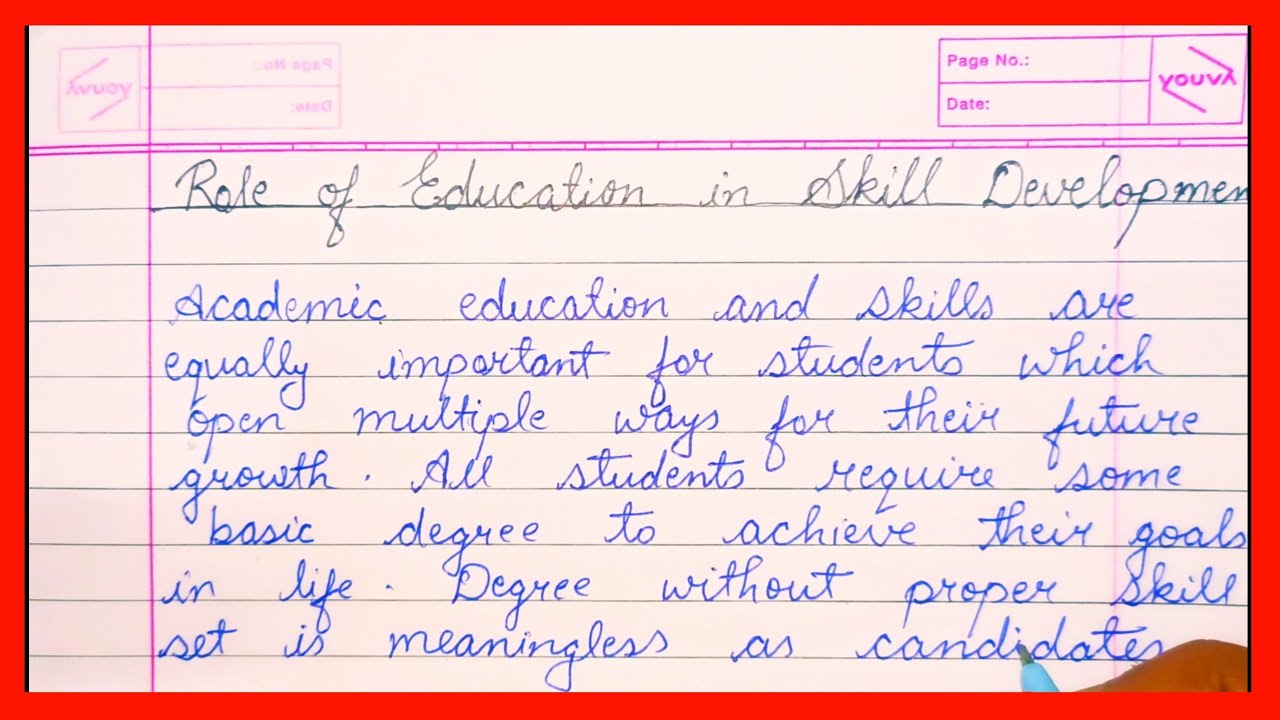 Page No.:
Date:
YOUVA
Role of Education in Skill Developmen
Academic education and skills are
equally important for students which
open multiple ways for their future
growth. All students require some
basic degree to achieve their goals
in life. Degree without proper skill
set is meaningless as candidates